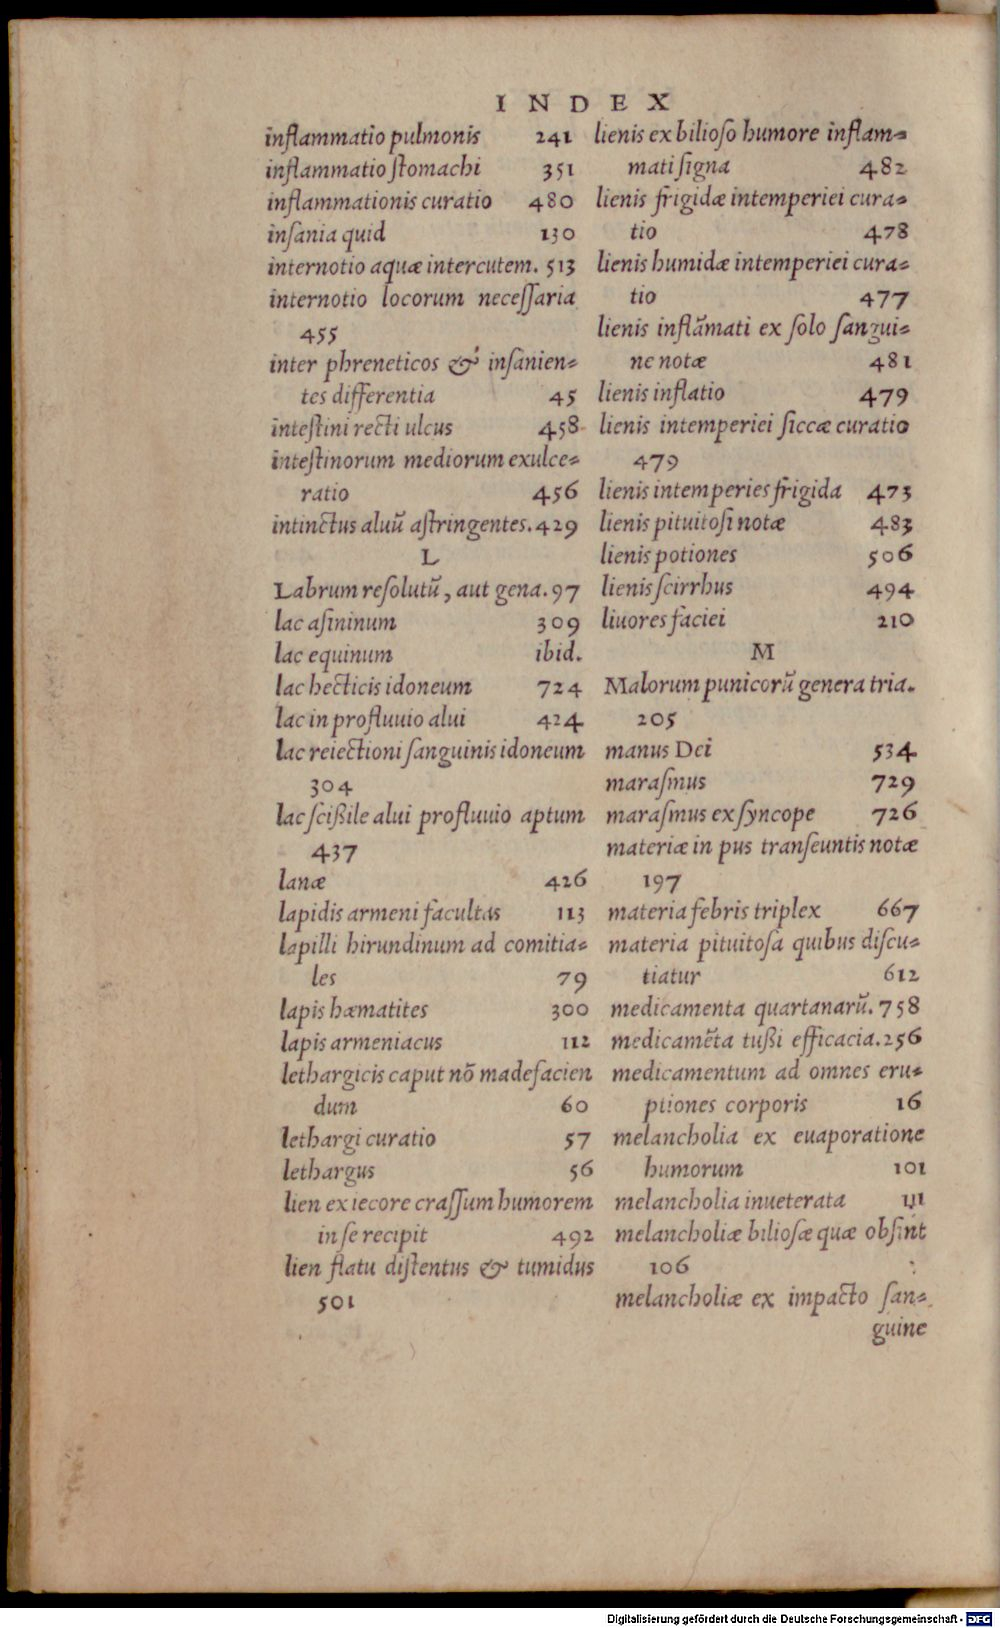 INDEX
inflammatio pulmonis 241
inflammatio ſtomachi 351
inflammationis curatio 480
inſania quid 130
internotio aquæ intercutem. 513
internotio locorum neceſſaria
455
inter phreneticos & inſanien-
tes differentia 45
inteſtini recti ulcus 458
inteſtinorum mediorum exulce-
ratio 456
intinctus aluũ aſtringentes. 429
L
Labrum reſolutũ, aut gena. 97
lac aſininum 309
lac equinum ibid.
lac hecticis idoneum 724
lac in profluuio alui 424
lac reiectioni ſanguinis idoneum
304
lac ſcißile alui profluuio aptum
437
lanæ 426
lapidis armeni facultas 113
lapilli hirundinum ad comitia-
les 79
lapis hæmatites 300
lapis armeniacus 112
lethargicis caput nõ madefacien
dum 60
lethargi curatio 57
lethargus 56
lien ex iecore craſſum humorem
in ſe recipit 492
lien flatu diſtentus & tumidus
501
lienis ex bilioſo humore inflam-
mati ſigna 482
lienis frigidæ intemperiei cura-
tio 478
lienis humidæ intemperiei cura-
tio 477
lienis inflãmati ex ſolo ſangui-
ne notæ 481
lienis inflatio 479
lienis intemperiei ſiccæ curatio
479
lienis intemperies frigida 473
lienis pituitoſi notæ 483
lienis potiones 506
lienis ſcirrhus 494
liuores faciei 210
M
Malorum punicorũ genera tria.
205
manus Dei 534
maraſmus 729
maraſmus ex ſyncope 726
materiæ in pus tranſeuntis notæ
197
materia febris triplex 667
materia pituitoſa quibus diſcu-
tiatur 612
medicamenta quartanarũ. 758
medicamẽta tußi efficacia. 256
medicamentum ad omnes eru-
ptiones corporis 16
melancholia ex euaporatione
humorum 101
melancholia inueterata 111
melancholiæ bilioſæ quæ obſint
106
melancholiæ ex impacto ſan-
guine
Digitalisierung gefördert durch die Deutsche Forschungsgemeinschaft - DFG